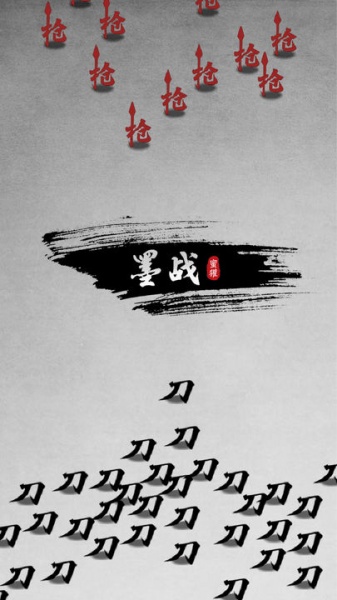 枪 枪 枪
枪
枪 枪 枪
枪
枪
墨战
蜜獾
刀
刀 刀
刀 刀
刀 刀 刀 刀 刀
刀 刀 刀
刀 刀 刀 刀
刀 刀 刀
刀 刀 刀 刀
刀 刀 刀
刀
刀 刀 刀
刀